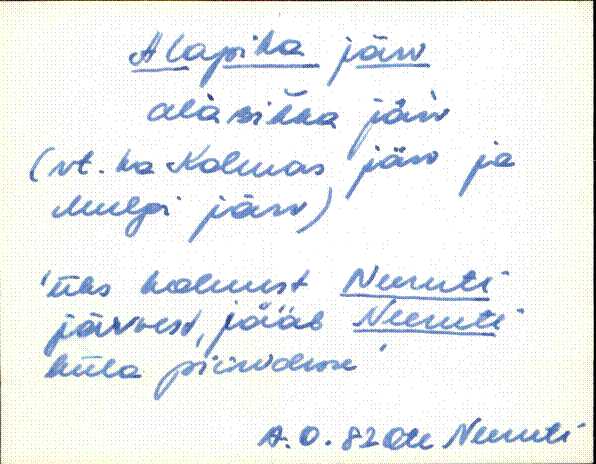 Alapika järv
alàpikka järv
(vt. ka Kolmas järv ja
Mulgi järv)
'üks kolmest Neeruti
järvest, jääb Neeruti
küla piiridesse'
A.O. 82 Neeruti